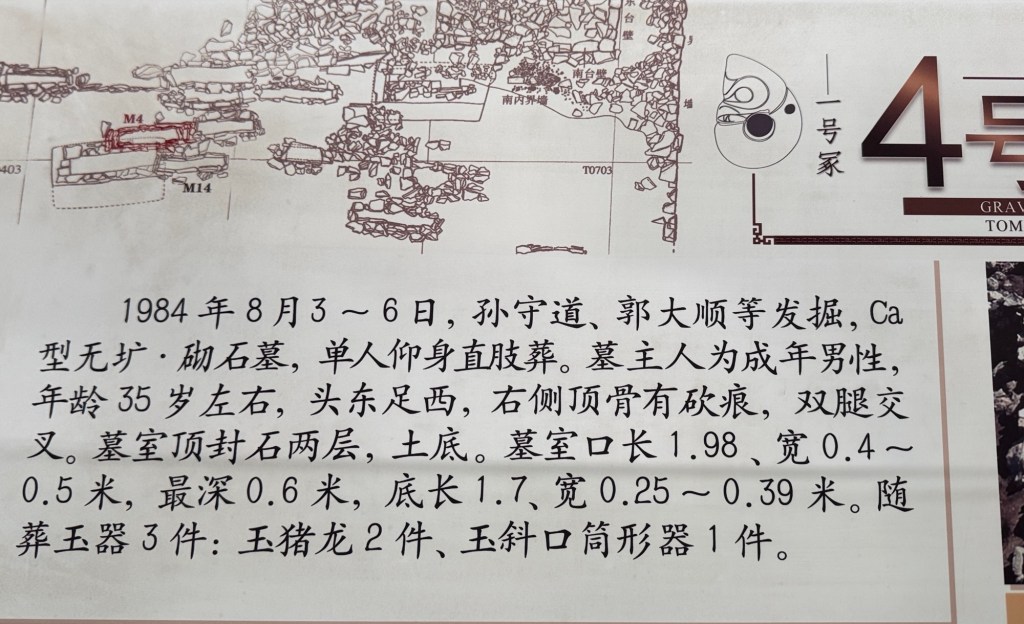 东台壁
南台壁
南内界墙
墙
M4
M14
403
T0703
一号冢
4号
GRAV
TOM
1984 年 8 月 3 ~ 6 日, 孙守道、郭大顺等发掘, Ca
型无圹·砌石墓, 单人仰身直肢葬。墓主人为成年男性,
年龄 35 岁左右, 头东足西, 右侧顶骨有砍痕, 双腿交
叉。墓室顶封石两层, 土底。墓室口长 1.98 、宽 0.4 ~
0.5 米, 最深 0.6 米, 底长 1.7、宽 0.25 ~ 0.39 米。随
葬玉器 3 件: 玉猪龙 2 件、玉斜口筒形器 1 件。